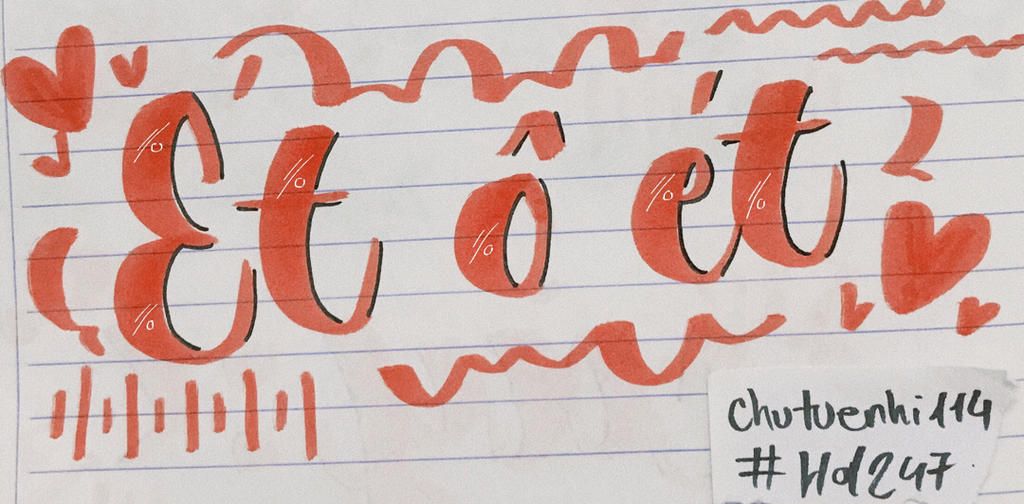 Et ô ét
chutuenhi114
#Hd247